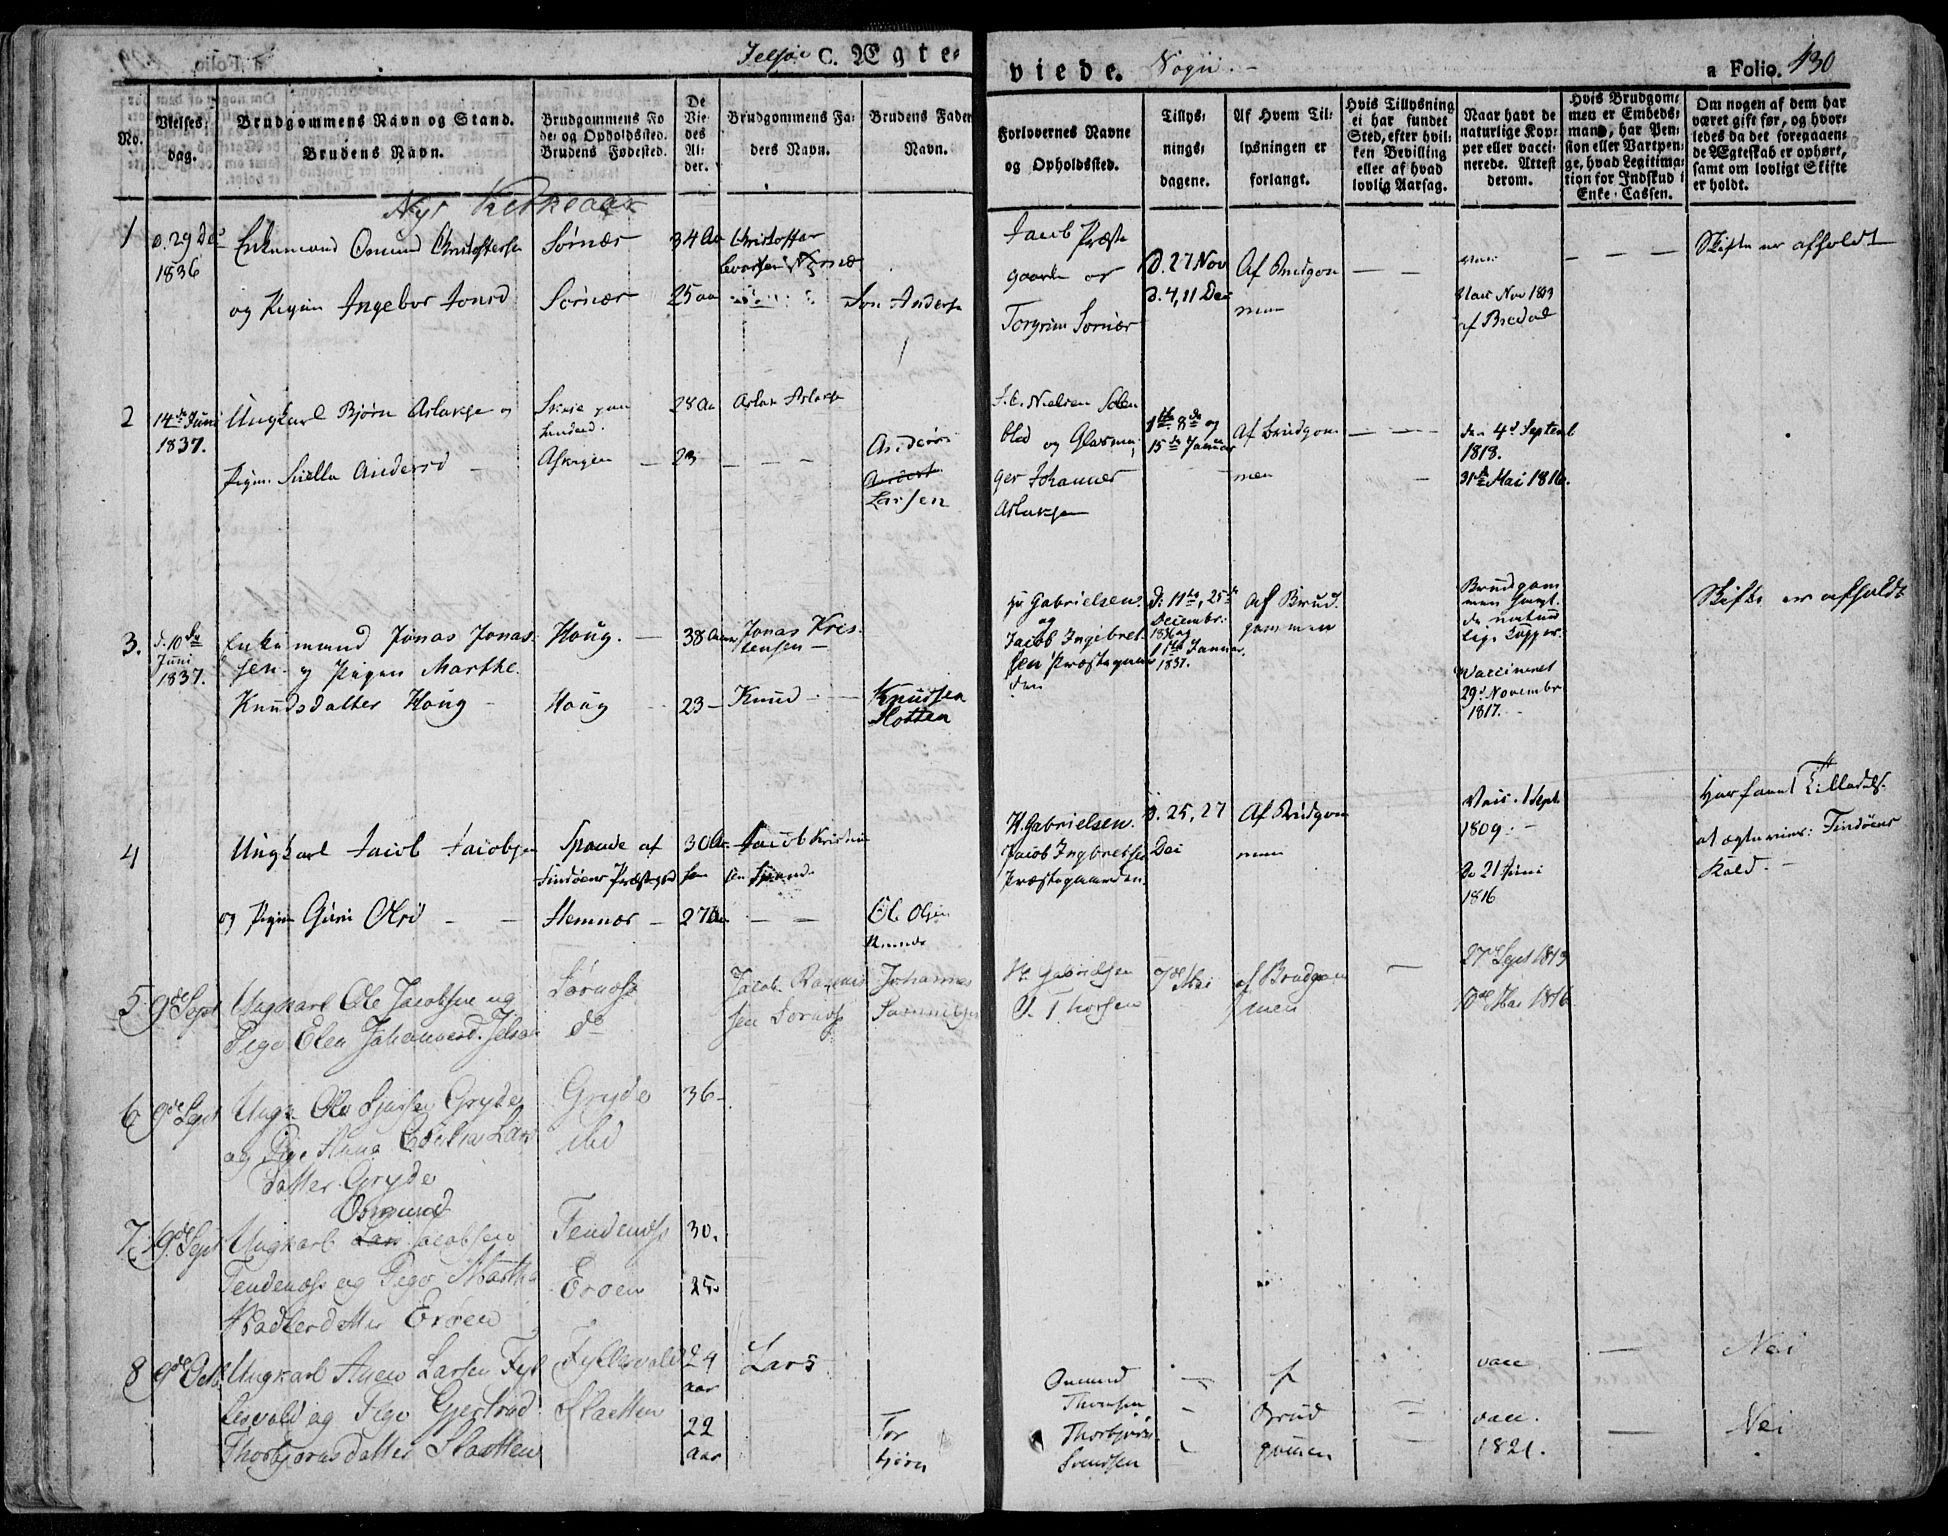 Jelsøe C. Ægteviede. Sogn
a Folio. 430
No.
Vielses-
dag.
Brudgommens Navn og Stand.
Brudens Navn.
Brudgommens Fø-
de- og Opholdssted.
Brudens Fødested.
De
Vie-
des
Al-
der.
Brudgommens Fa-
ders Navn.
Brudens Fader
Navn.
Forlovernes Navne
og Opholdssted.
Tillys-
nings-
dagene.
Af Hvem Til-
lysningen er
forlangt.
Hvis Tillysning
ei har fundet
Sted, efter hvil-
ken Bevilling
eller af hvad
lovlig Aarsag.
Naar havt de
naturlige Kop-
per eller vacci-
nerede. Attest
derom.
Hvis Brudgom-
men er Embeds-
mand, har Pen-
sion eller Vartpen-
ge, hvad Legitima-
tion for Indskud i
Enke-Cassen.
Om nogen af dem har
været gift før, og hvor-
ledes da det foregaaen-
de Ægteskab er ophørt,
samt om lovligt Skifte
er holdt.
Nyt Kirkeaar
1
d. 29 De
1836
Enkemand Osmund Christophersen
og Pigen Ingebor Jonsd
Sørnæs
Sørnæs
34 Aa
25 aa
Christoffer
Jon Anders
Jacob Præste
gaarden og
Torgrim Sørnæs
d. 27 Nov
d. 4, 11 Dec
Af Brudgom
men
Nov 1819
af Bredal
Skifte er afholdt
2
14de Juni
1837.
Ungkarl Bjørn Aslaksen og
Pigen Siella Andersd
28 Aa
23
Aslak Aslaksen
Anders
Larsen
Nielsen
og Glarme
ger Johannes
Aslaksen
1te 8de og
15de Januar
Af Brudgom
men
den 4de Septemb
1818.
31te Mai 1816.
3.
d. 10de
Juni
1837.
Enkemand Jonas Jonas
sen og Pigen Marthe
Knudsdatter Houg
Houg.
Houg
38 Aar
23
Jonas Kris-
tensen
Knud
Knudsen
Hotten
Hr Gabrielsen
og
Jacob Ingebret
sen Præstegaar
den
d. 11te, 25de
Decembr:
1836 og
1te Januar
1837.
Af Brud
gommen
Brudgom
men havt
de natur
lige Kopper
Vaccineret
29de Novembr
1817.
Skifte er afholdt
4
Ungkarl Jacob Jacobsen
og Pigen Guri Olsd
Spande af
Findøens Præstegjeld
Hemnæs
30 Aa
27 Aa
Jacob Kristen
sen Spande
Ole Olsen
H. Gabrielsen.
Jacob Ingebretsen
Præstegaarden.
d. 25, 27
Dec
Af Brudgom
men
Vacc. 1 Sept.
1809.
d. 21 Juni
1816
Har faaet Tilladelse
at ægtevies i Findøens
Kald
5
9de Sept
Ungkarl Ole Jacobsen og
Pige Elen Johannesd. Jelsøe
Sørnæs
do
Jacob Rasmus
sen Sørnæs
Johannes
Samuelsen
Hr Gabrielsen
O. Thorsen
7de Mai
af Brudgom
men
27de Sept 1813
10de Mai 1816
6
9de Sept
Ungk. Ole Larsen Gryde
og Pige Anna Lars
datter Gryde
Gryde
ibid
36
7
19de Sept
Osmund
Ungkarl Lars Jacobsen
Tendenæs og Pige Martha
datter Erøen
Tendenæs
Erøen
30.
25
8
9de Octb
Ungkarl Anen Larsen Fyl
lesvold og Pige Gjertrud
Thorbjørnsdatter Slaatten
Fyllesvold
Slaatten
24
aar
22
aar
Lars
Tor
bjørn
Osmund
Thomsen
Thorbjørn
Svendsen
af
Brud
gommen
vacc
vacc.
1821.
Nei
Nei